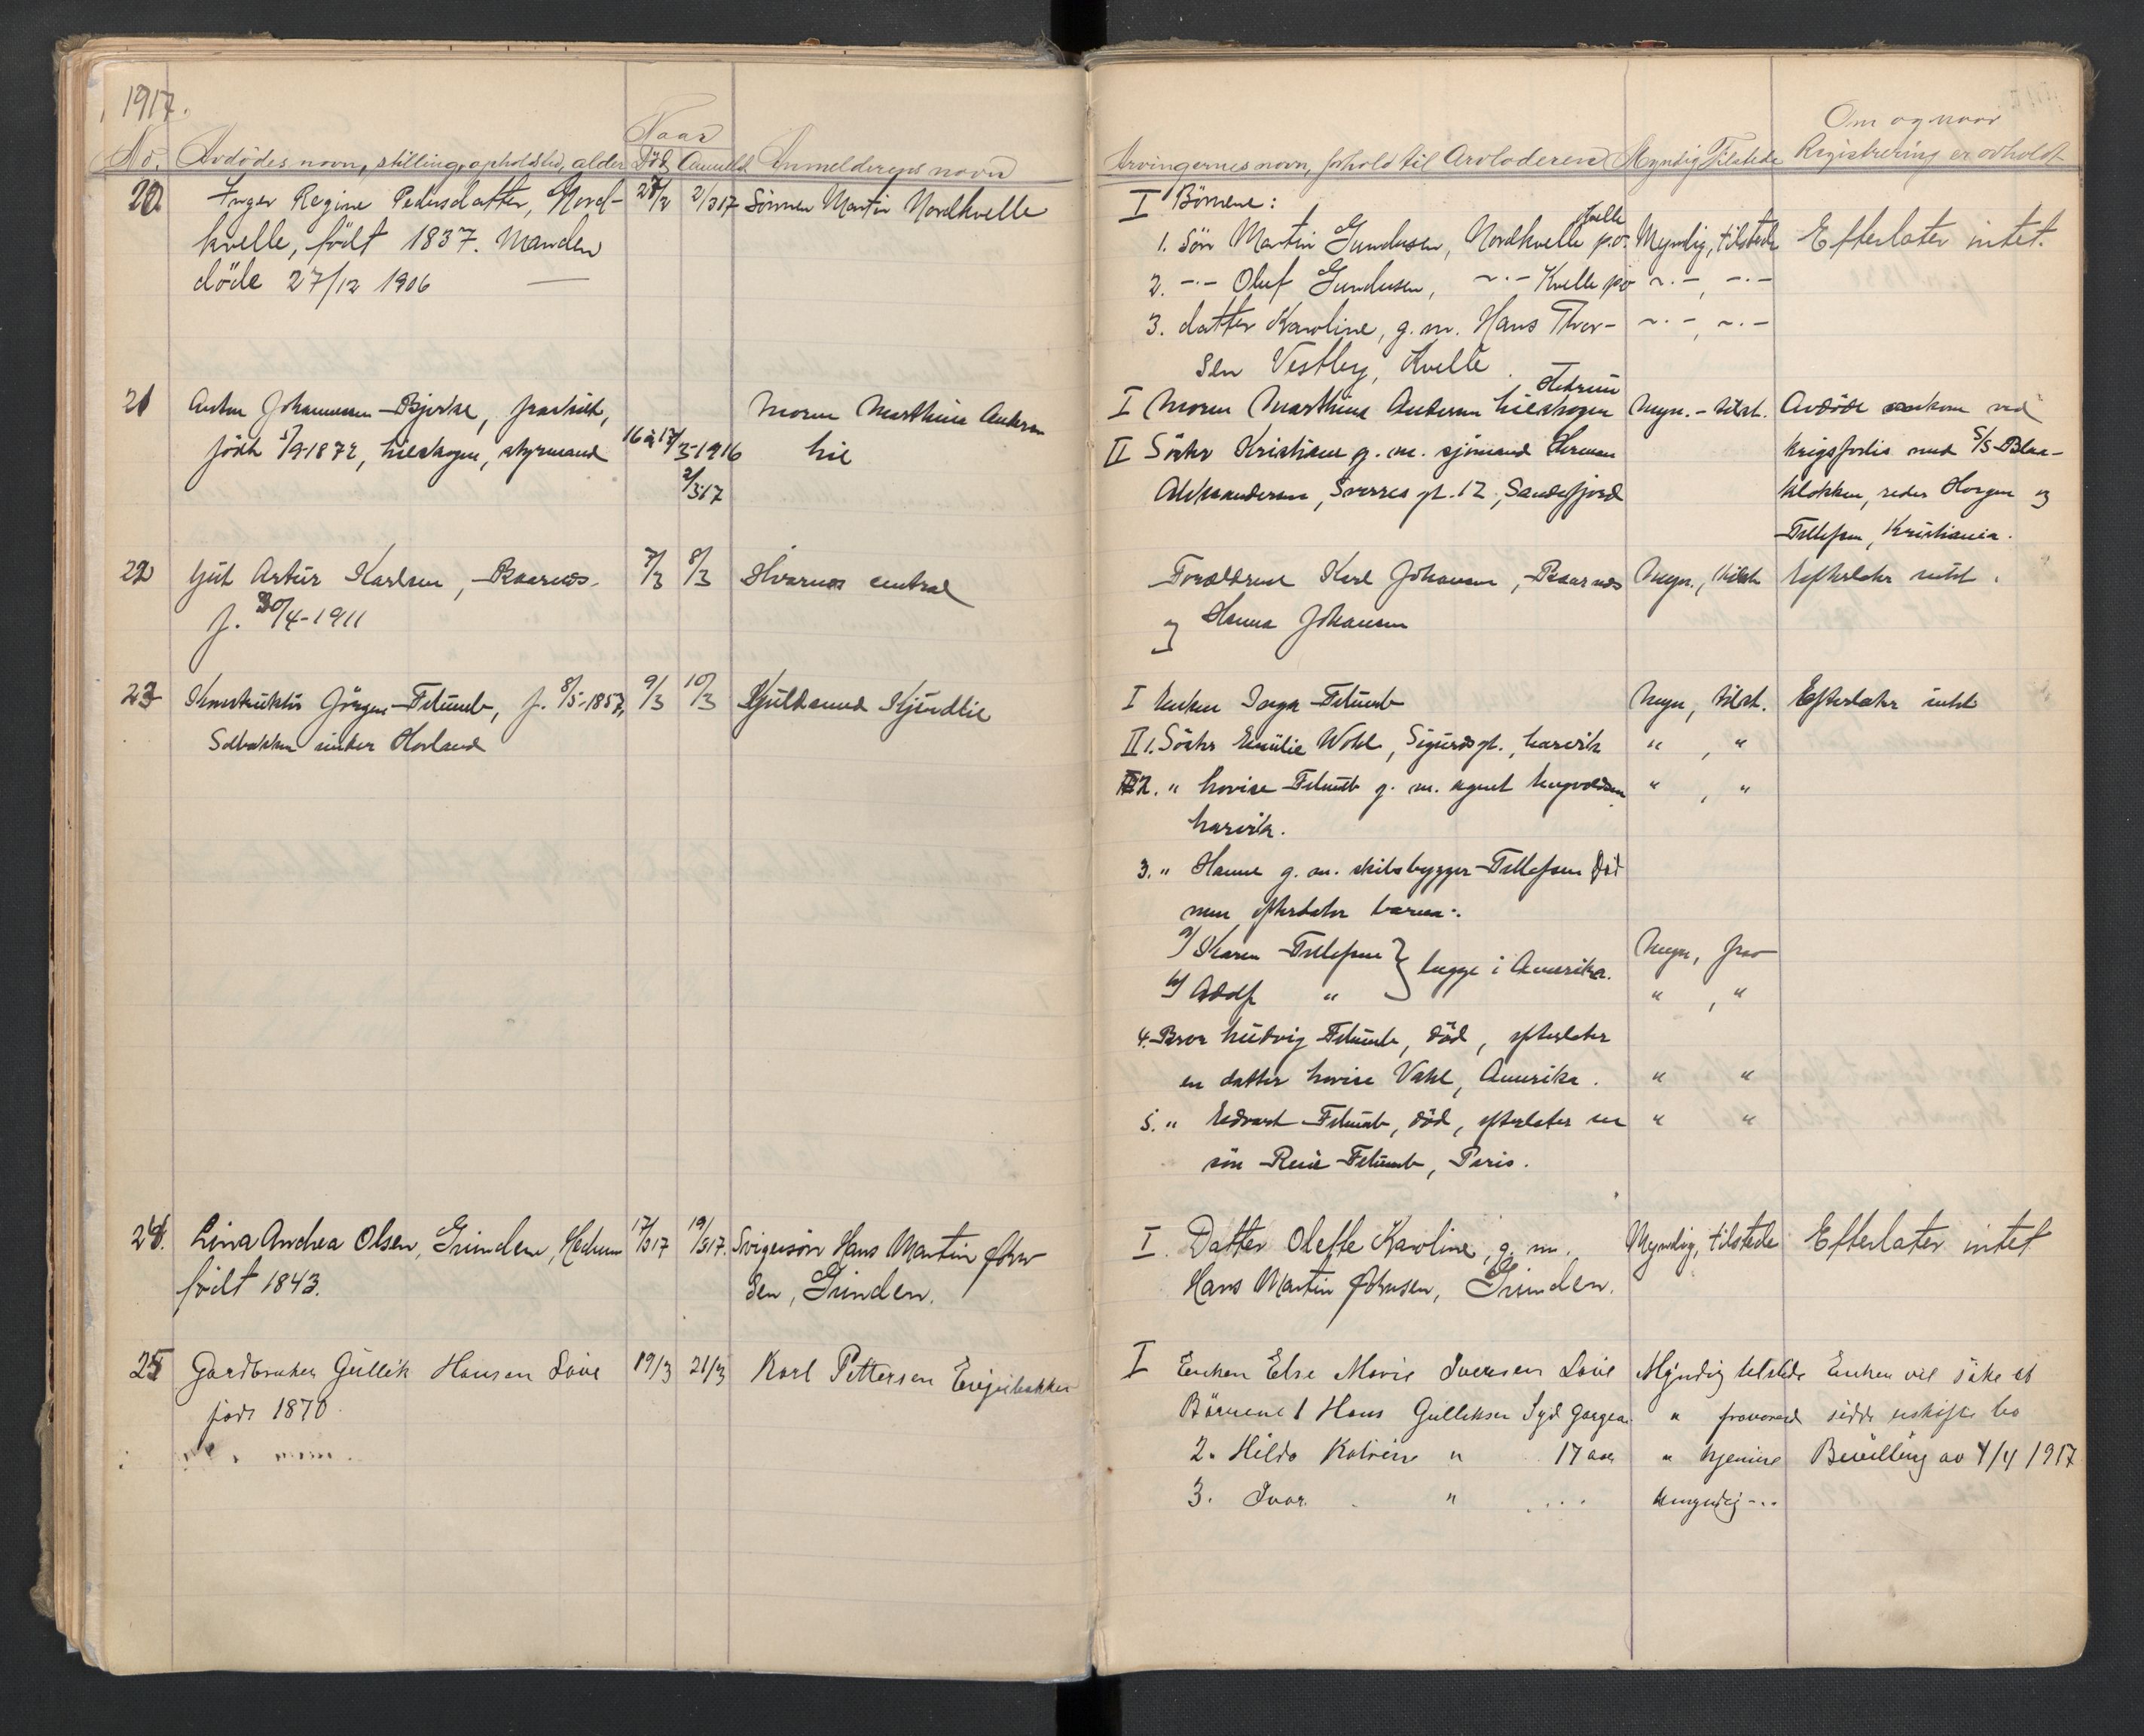 1917.
Naar
No. Avdödes navn, stilling, opholdsted, alder Död Anmeldt Anmelderens navn
20. Inger Regine Pedersdatter, Nord- 27/2 2/3 17 Sönnen Martin Nordkvelle
kvelle, födt 1837. Manden
döde 27/12 1906 —
21 Anton Johannessen Bjerke, fraskilt, Moren Marthine Andersen
födt 5/9-1872, Lieskogen, styrmand 16 à 17/3-1916 Lie
2/3 17
22 Gut Artur Karlsen, Baarnes. 7/3 8/3 Hvarnes central
f. 30/4-1911
23 Konstruktör Jörgen Felumb, f. 8/5-1857, 9/3 10/3 Kjeldsund
Solbakken under Hovland
24. Lina Andrea Olsen, Grinden, Hedrum 17/3 17 19/3 17. Svigersön Hans Martin John-
födt 1843. sen, Grinden.
25 Gardbruker Gullik Hansen Löve 19/3 21/3 Karl Pettersen
föd 1870
Om og naar
Arvingernes navn, forhold til Arvladeren Myndig Tilstede Registrering er avholdt
I Börnene:
Kvelle
1. Sön Martin Gundersen, Nordkvelle p.o. Myndig, tilstede Efterlater intet.
2. -·- Oluf Gundersen, ~·- Kvelle po ~·-, -·-
3. datter Karoline, g.m. Hans Thor- ~·-, ~·-
sen Vestby, Kvelle
Hedrum
I Moren Marthine Andersen Lieskogen Myn. - tilst. Avdöde omkom ved
II Söster Kristiane g. m. sjömand Herman krigsforlis med S/S Blaa-
Aleksandersen, Sverres gt. 12, Sandefjord klokken, reder Horgen og
Tellefsen, Kristiania.
Forældrene Karl Johansen, Baarnes Myn., tilst. Efterlater intet.
og Hanna Johansen
I Enken Inga Felumb Myn, tilst. Efterlater intet
II 1. Söster Emilie Wohl, Sigurdsgt., Larvik " , "
2. " Lovise Felumb g. m. agent Ingvoldsen " , "
Larvik.
3. " Hanne g. m. skibsbygger Tellefsen död
men efterlater barna:
a/ Karen Tellefsen } begge i Amerika. Myn, frav
b/ Adolf " " , "
4. Bror Ludvig Felumb, död, efterlater
en datter Lovise Vahl, Amerika. " "
5. " Edvard Felumb, död, efterlater en " "
sön René Felumb, Paris.
I. Datter Oleffe Karoline, g. m. Myndig, tilstede Efterlater intet
Hans Martin Johnsen, Grinden.
I Enken Else Marie Iversen Löve Myndig tilstede Enken vil söke at
Börnene 1 Hans Gulliksen Syd Georgia " fraværend sidde uskiftet bo
2. Hilda Katrine " 17 aar " hjemme Bevilling av 4/4 1917
3. Ivar. " Umyndig -··